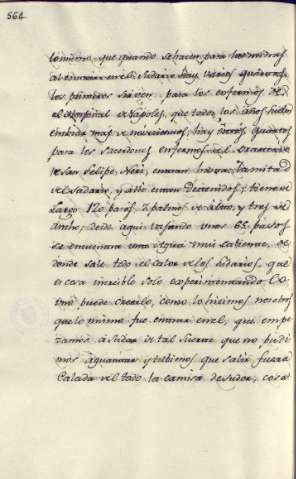 564
lo mismo, que quando se hacen, para las mudras
al entrar en el sudario hay varios quartos,
los primeros sirven para los enfermos de
el Hospital de Napoles, que todos los años suelen
embiar mas de novecientos, hay otros quartos
para los sacerdotes enfermos,
de San Felipe Neri, entran la mitad
del sudario, y alto estan Decendidos, tiene de
Largo 120 pasos, 7 palmos de alto, y tres de
Ancho, desde aqui vajando unos 65 pasos
se encuentra una Agua mui caliente, de
donde sale todo el calor de los sudarios, que
es cosa increible, solo experimentando lo
uno puede creerlo, como lo hicimos nosotros
que lo mismo fue entrar en el, que empe
zamos a sudar de tal suerte que no pudi
mos aguantar, y tubimos que salir fuera
Calada del todo la camisa de sudor, cosa